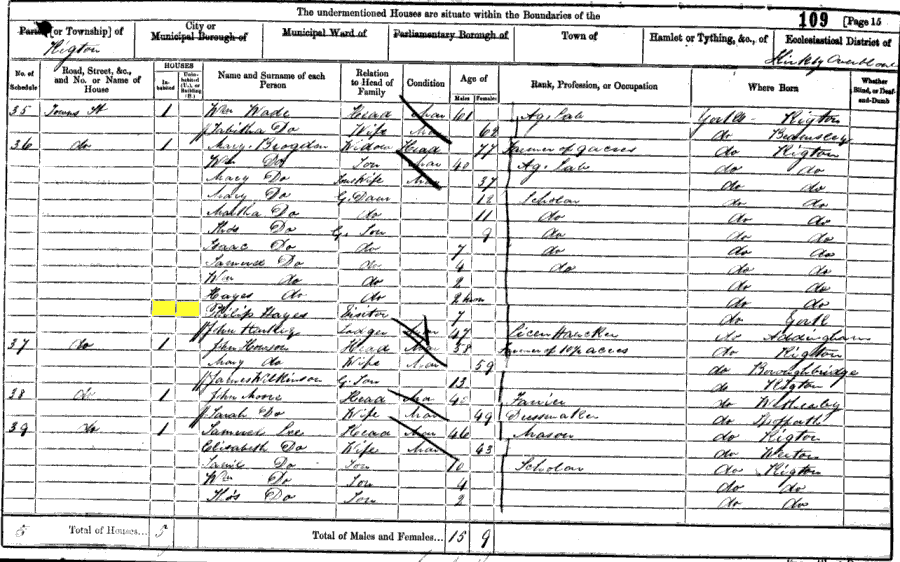 The undermentioned Houses are situate within the Boundaries of the
109 [Page 15
Parish [or Township] of
City or Municipal Borough of
Municipal Ward of
Parliamentary Borough of
Town of
Hamlet or Tything, &c., of
Ecclesiastical District of
Rigton
Kirkby Overblow
No. of Schedule
Road, Street, &c., and No. or Name of House
HOUSES
Inhabited
Uninhabited (U.), or Building (B.)
Name and Surname of each Person
Relation to Head of Family
Condition
Age of
Males
Females
Rank, Profession, or Occupation
Where Born
Whether Blind, or Deaf-and-Dumb
35 Towns St 1 Wm Wade Head Mar 61 Ag. Lab Yorks Rigton
Tabitha Do Wife Mar 62 do
36 do 1 Mary Brogden Widow Head 77 Farmer of 9 acres do Rigton
Wm Do Son Mar 40 Ag. Lab do do
Mary Do Sons Wife Mar 37 do do
Mary Do G. Daur 12 Scholar do do
Martha Do do 11 do do do
Thos Do G. Son 9 do do do
Isaac Do do 7 do do do
Samuel Do do 4 do do do
Wm do do 2 do do
Hayes do do 2 mon do do
Philip Hayes Visitor 7 do York
John Hartley Lodger 47 do Addingham
37 do 1 John Houson Head Mar 58 Farmer of acres do Rigton
Mary do Wife Mar 59 do Boroughbridge
James Wilkinson G. Son 13 do Rigton
38 do 1 John Moore Head Mar 45 Farrier do Wetherby
Sarah Do Wife Mar 49 Dressmaker do
39 do 1 Samuel Lee Head Mar 46 Mason do Rigton
Elisabeth Do Wife Mar 43 do Weeton
Do Son 10 Scholar do Rigton
Wm Do Son 4 do do
Thos Do Son 2 do do
5 Total of Houses... 5 Total of Males and Females... 15 9